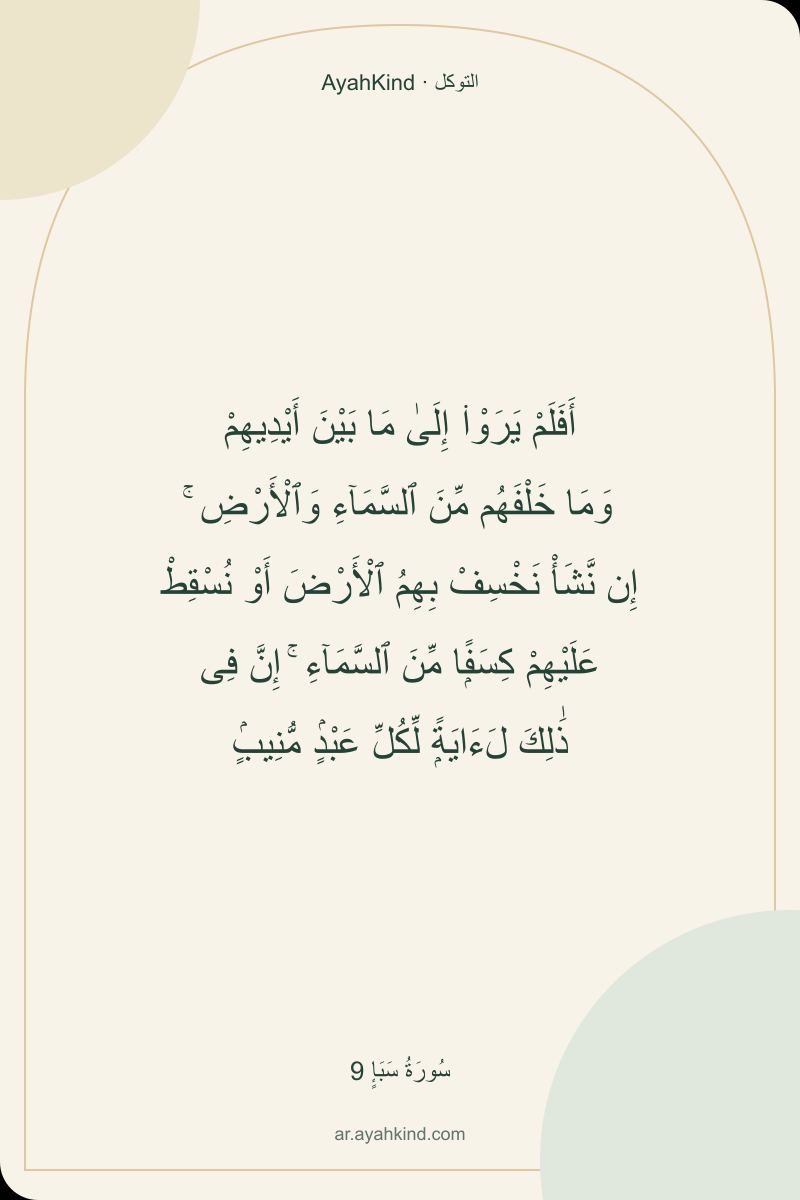 AyahKind · التوكل
أَفَلَمْ يَرَوْا۟ إِلَىٰ مَا بَيْنَ أَيْدِيهِمْ
وَمَا خَلْفَهُم مِّنَ ٱلسَّمَآءِ وَٱلْأَرْضِ ۚ
إِن نَّشَأْ نَخْسِفْ بِهِمُ ٱلْأَرْضَ أَوْ نُسْقِطْ
عَلَيْهِمْ كِسَفًۭا مِّنَ ٱلسَّمَآءِ ۚ إِنَّ فِى
ذَٰلِكَ لَءَايَةًۭ لِّكُلِّ عَبْدٍۢ مُّنِيبٍۢ
سُورَةُ سَبَإٍ 9
ar.ayahkind.com